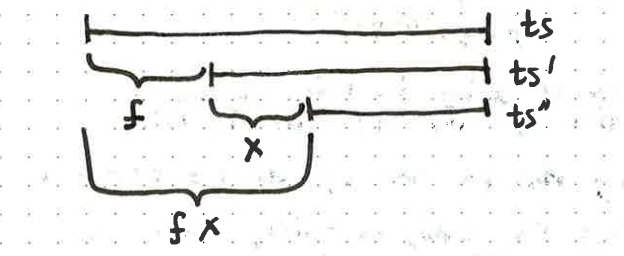 ts
ts'
f
ts"
x
f x